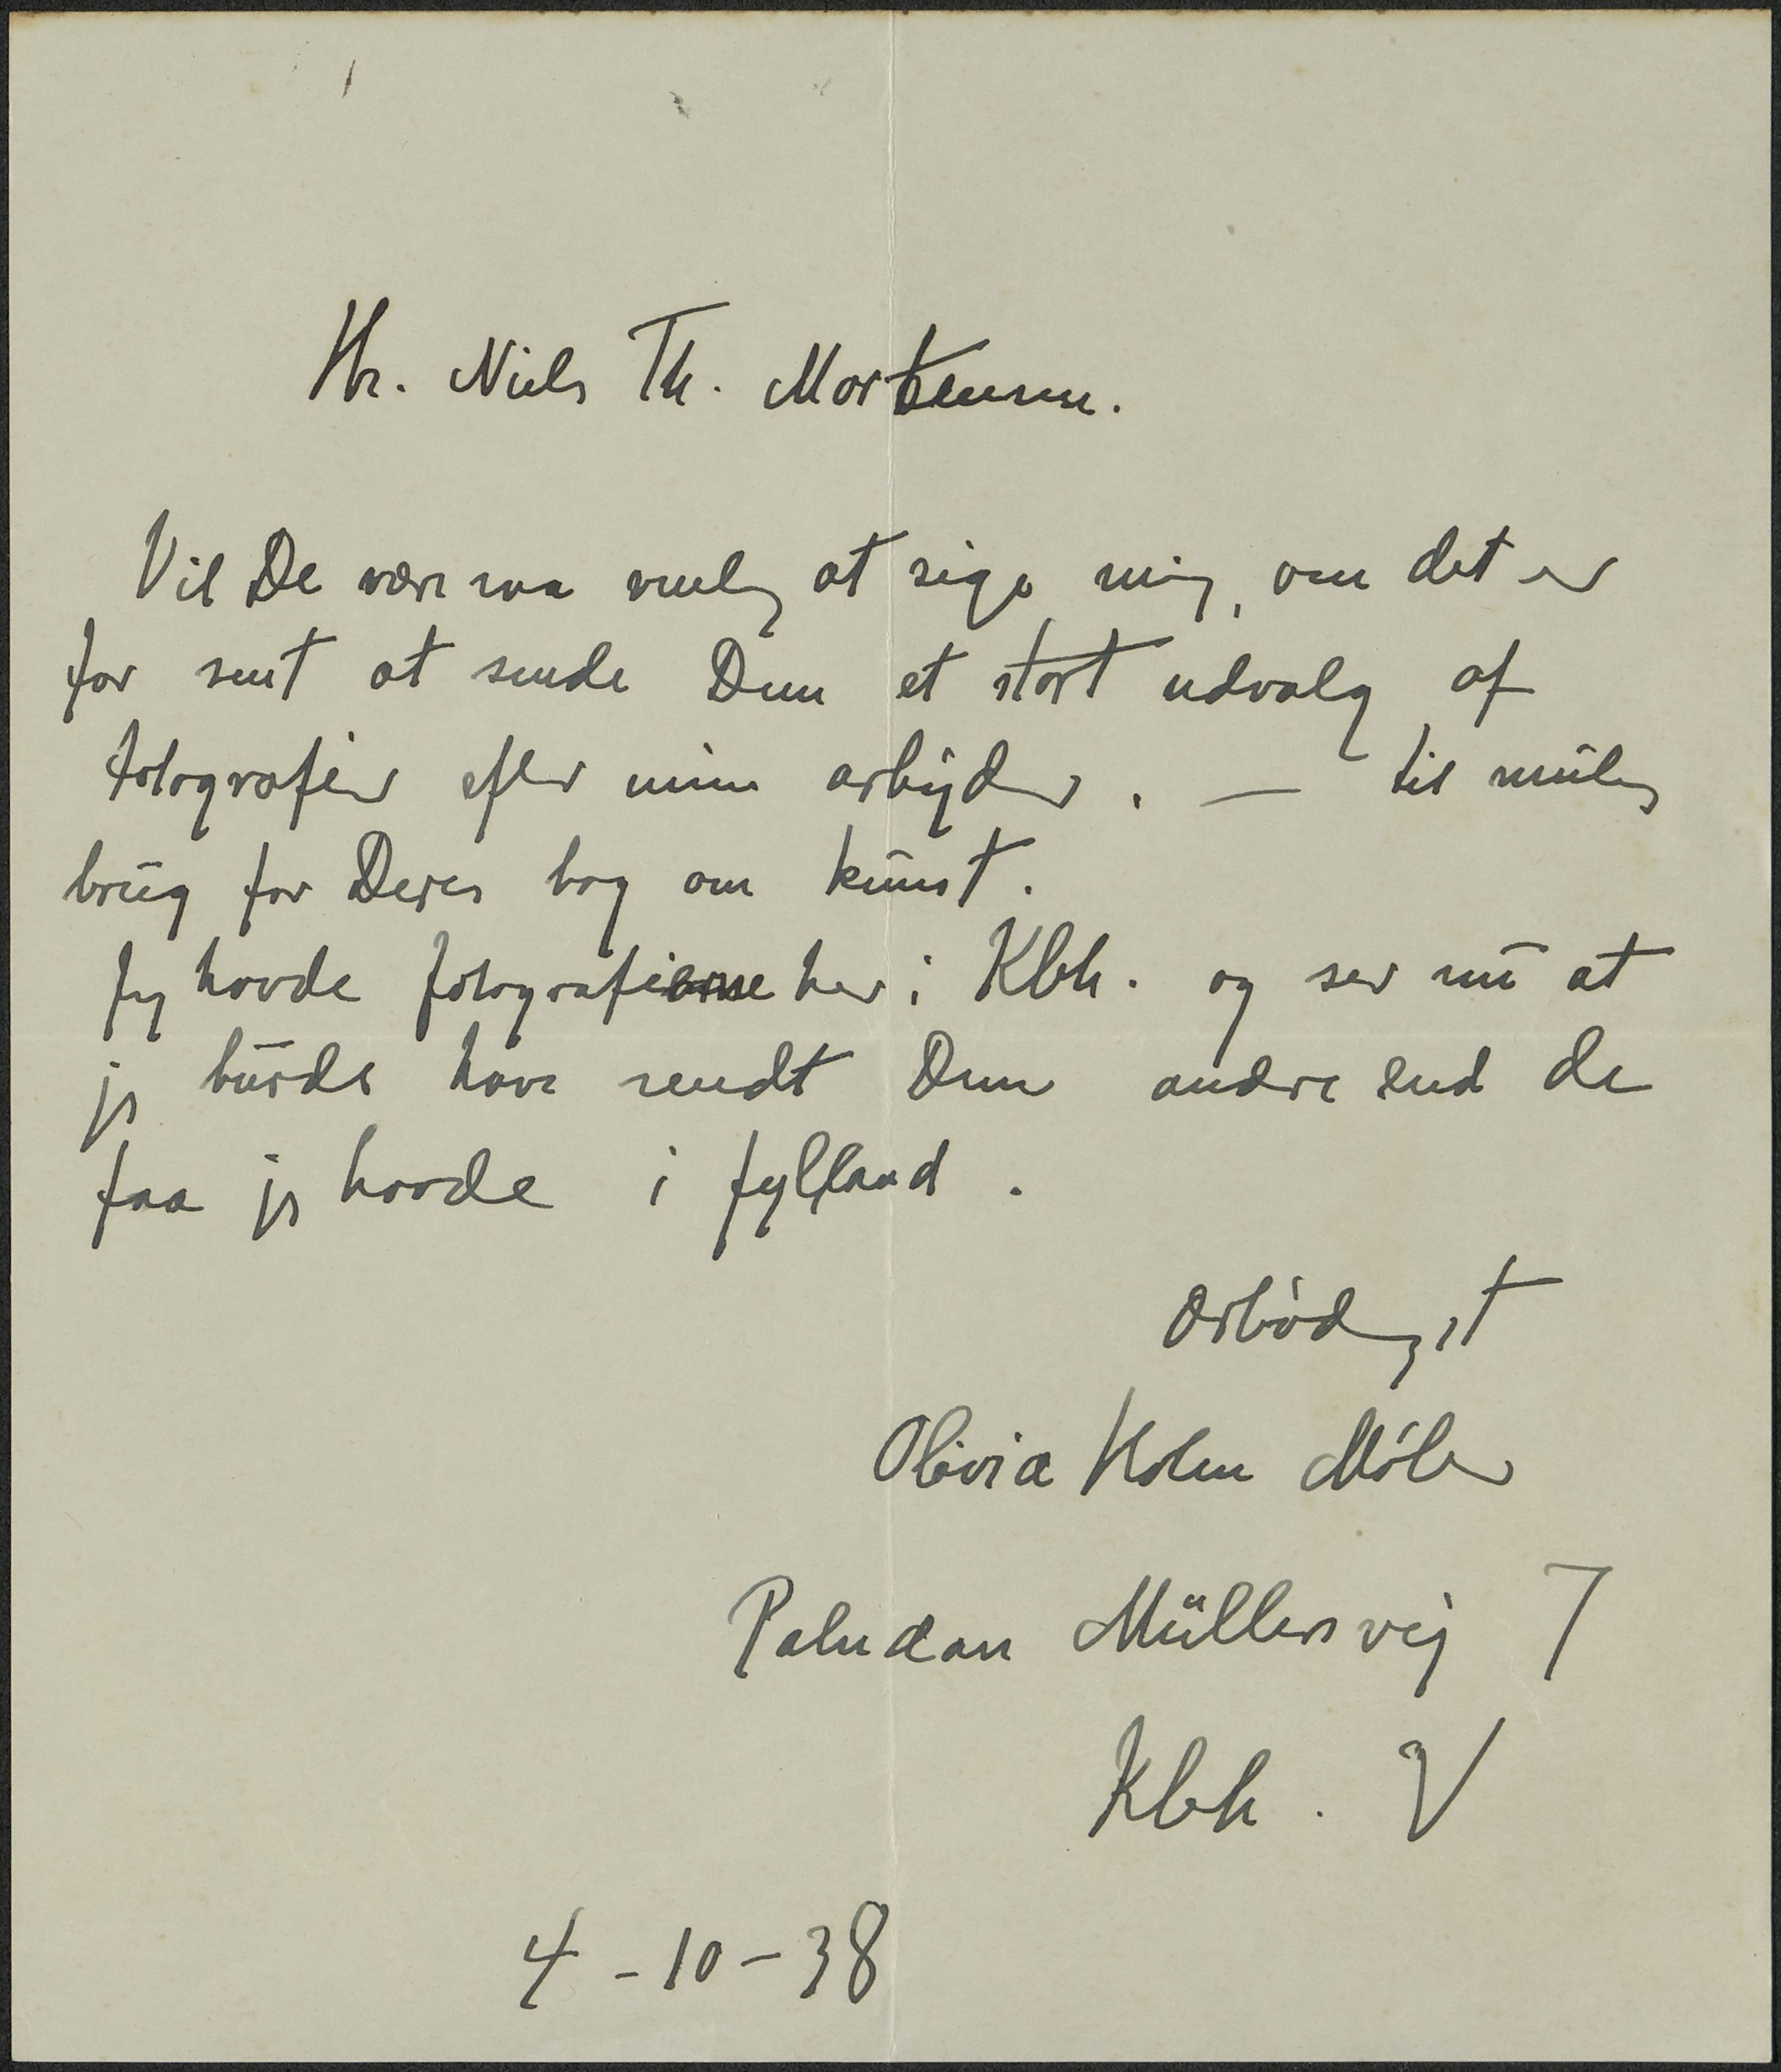 Hr. Niels Th. Mortensen.
Vil De være saa venlig at sige mig, om det er
for sent at sende Dem et stort udvalg af
fotografier efter mine arbejder, — til mulig
brug for Deres bog om kunst.
Jeg havde fotografierne her i Kbh. og ser nu at
jeg burde have sendt Dem andre end de
faa jeg havde i Jylland.
Ærbødigst
Olivia Holm Møller
Paludan Müllersvej 7
Kbh. V
4-10-38